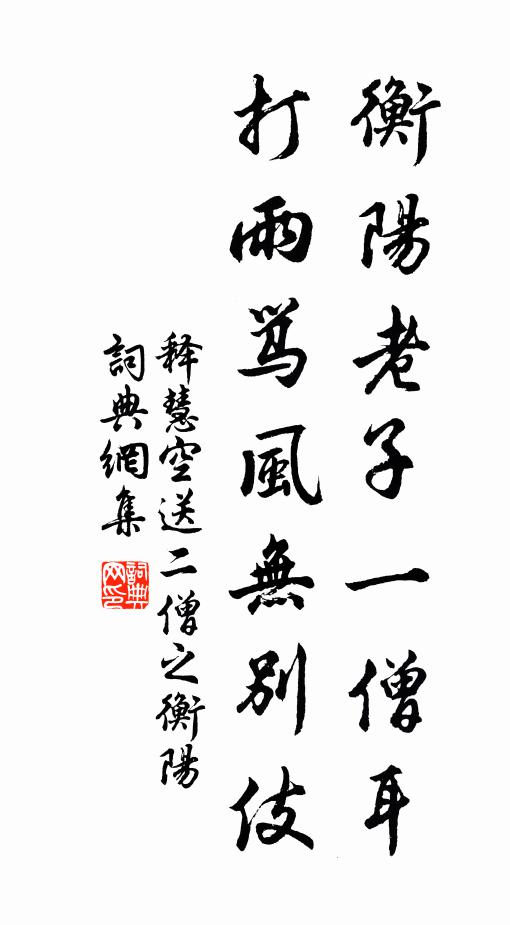 衡陽老子一僧耳
打雨骂風無别伎
释慧空送二僧之衡陽
詞典網集
詞典網印